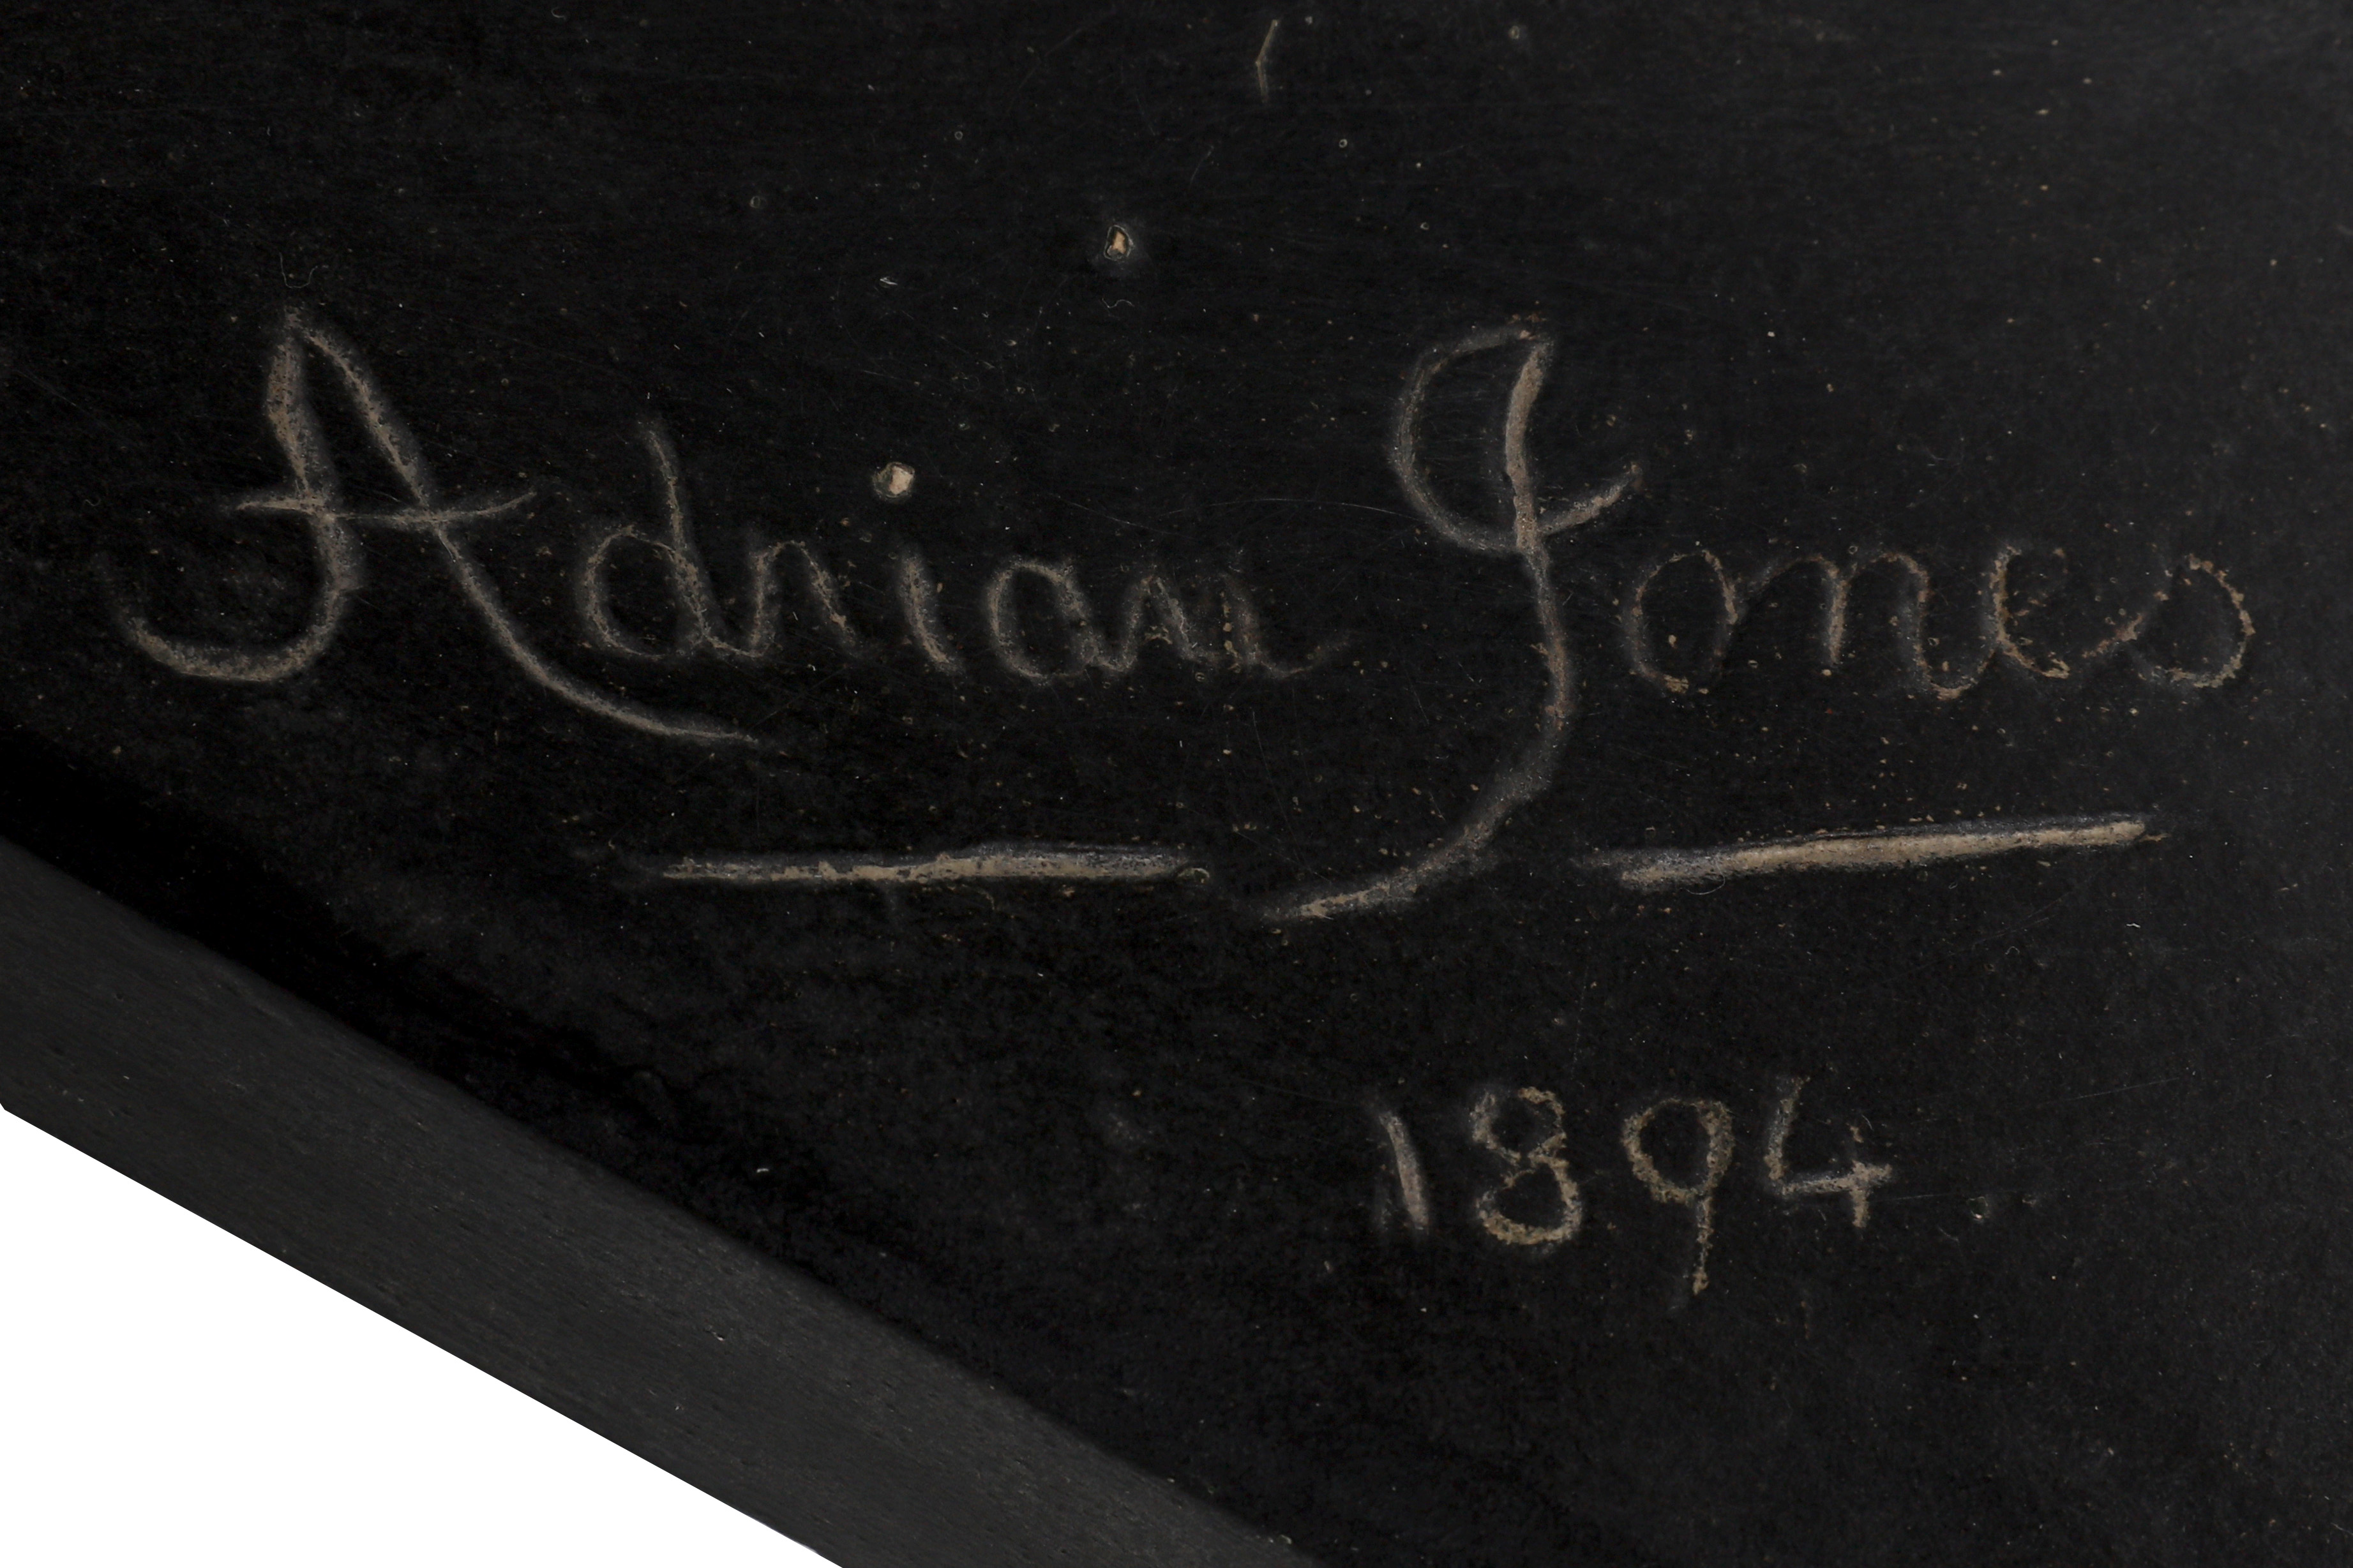 Adrian Jones
1894